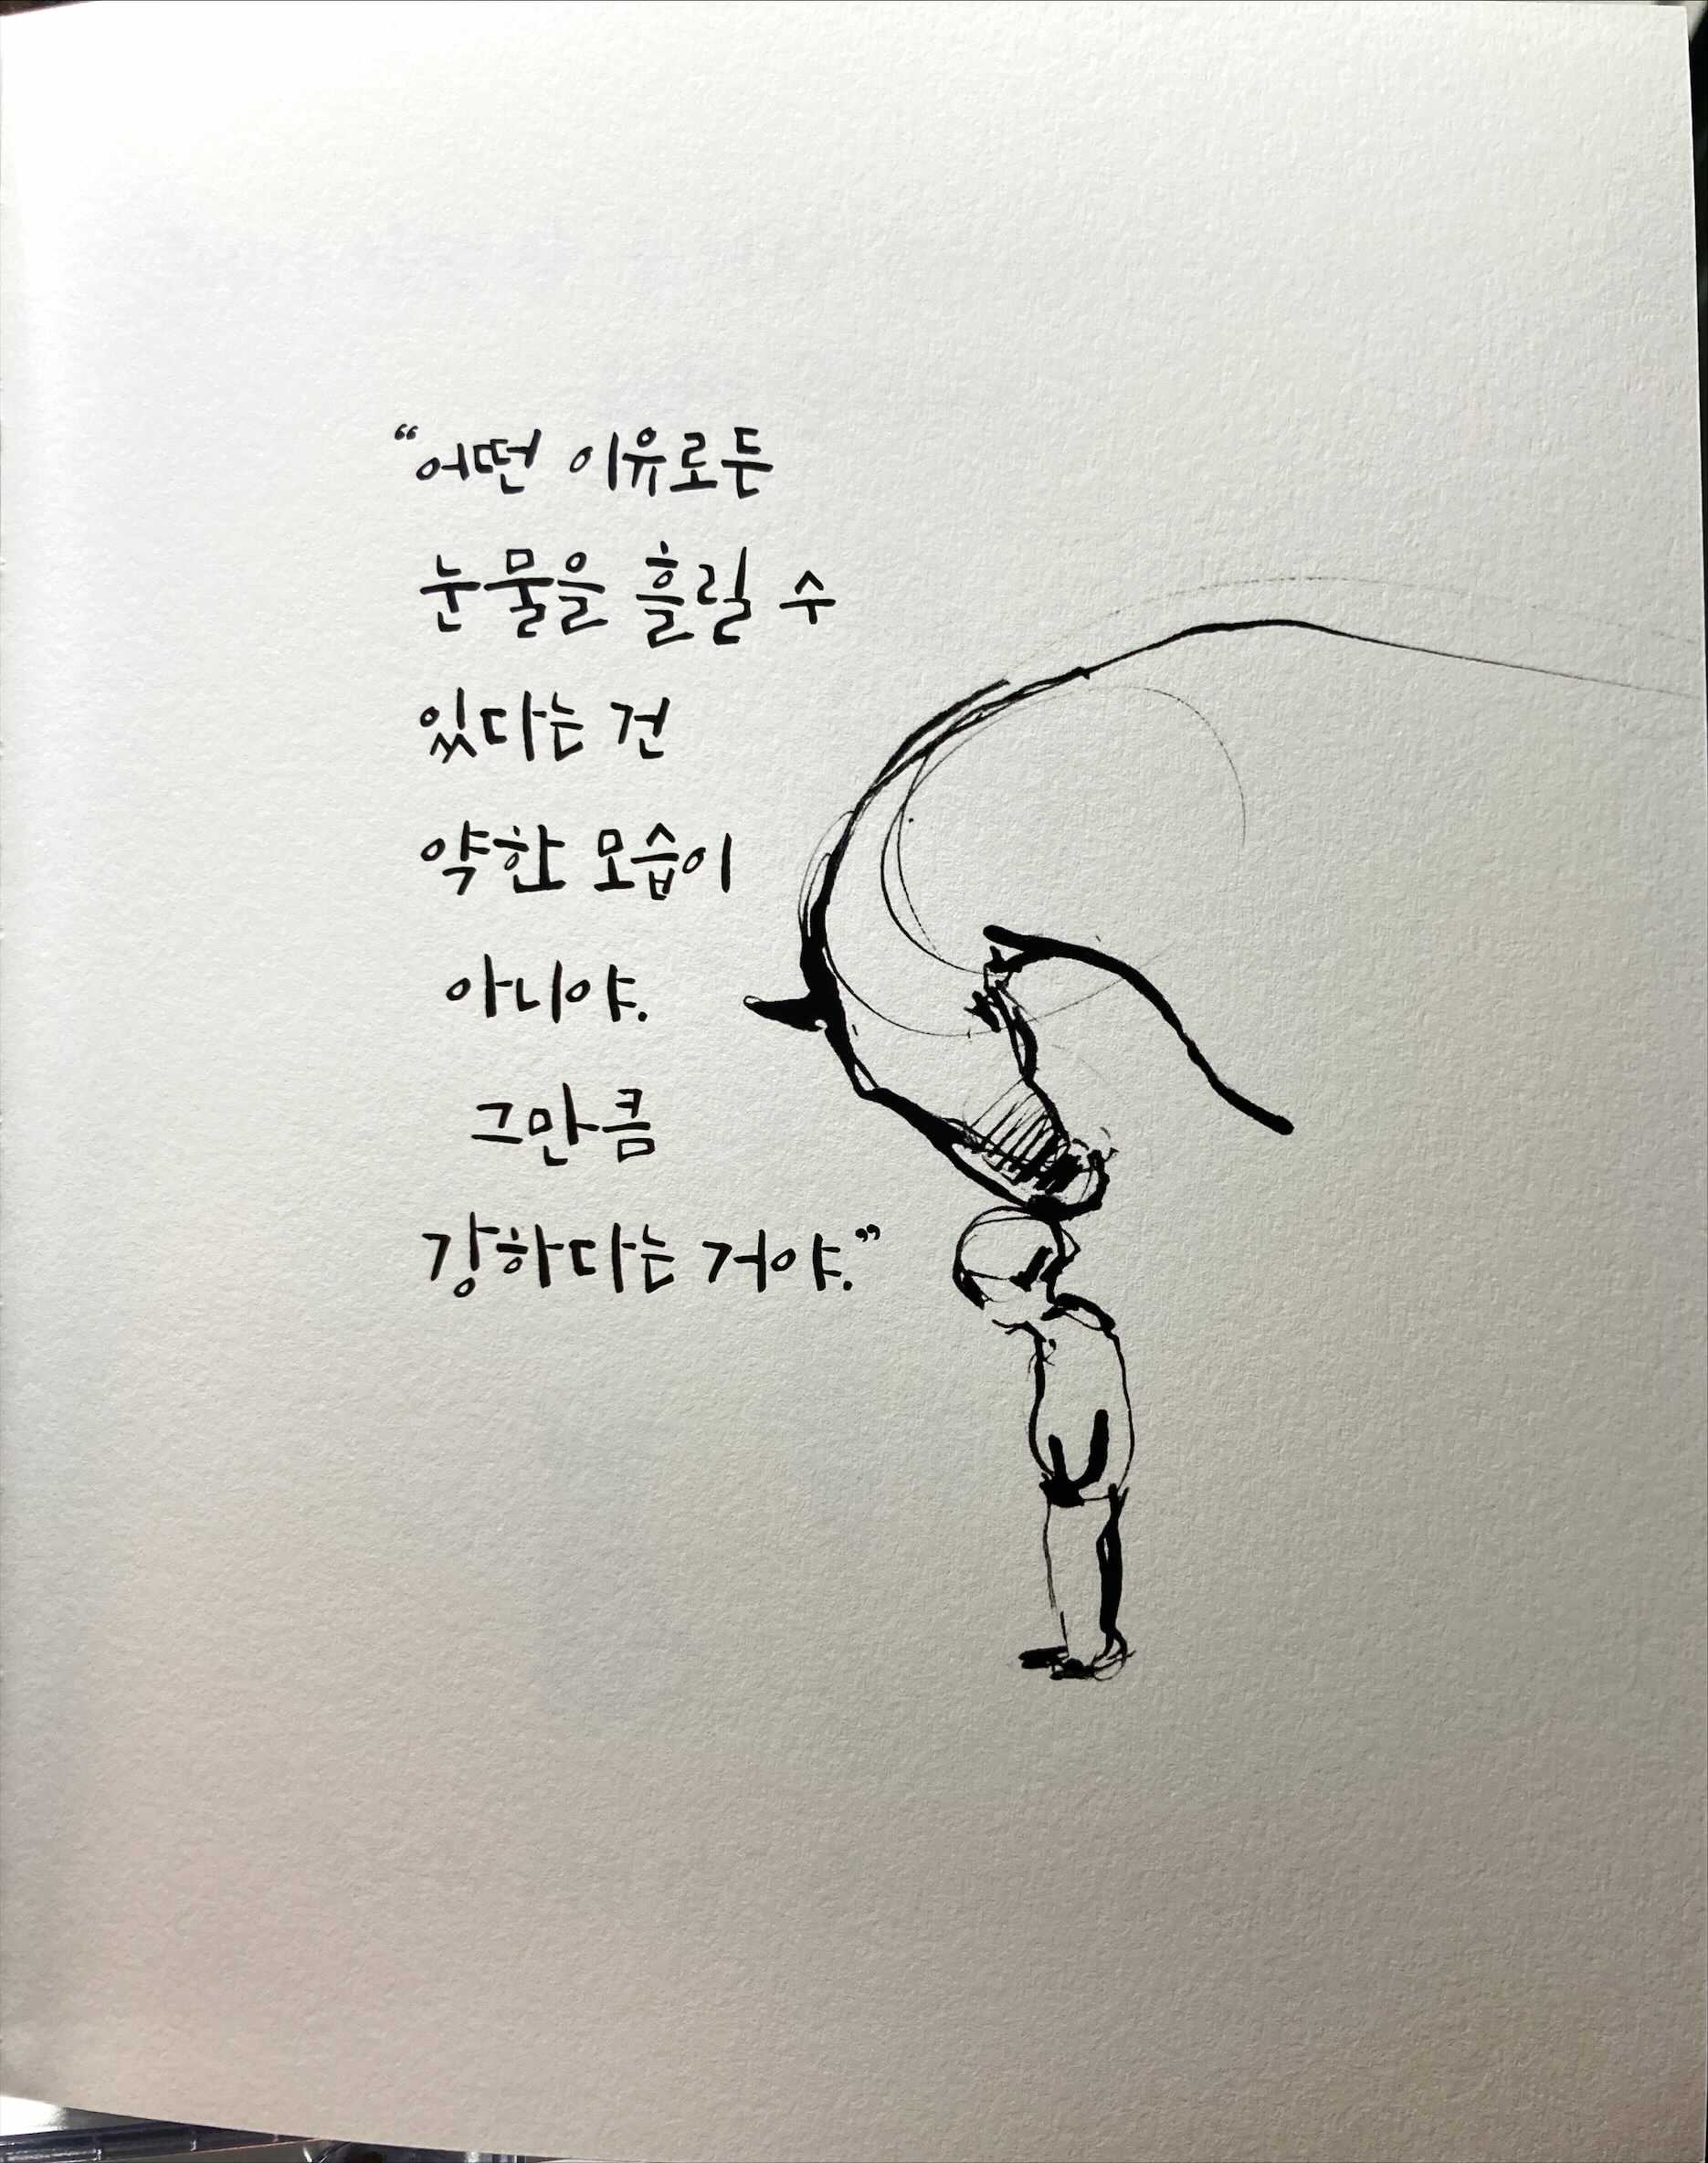 “어떤 이유로든
눈물을 흘릴 수
있다는 건
약한 모습이
아니야.
그만큼
강하다는 거야.”